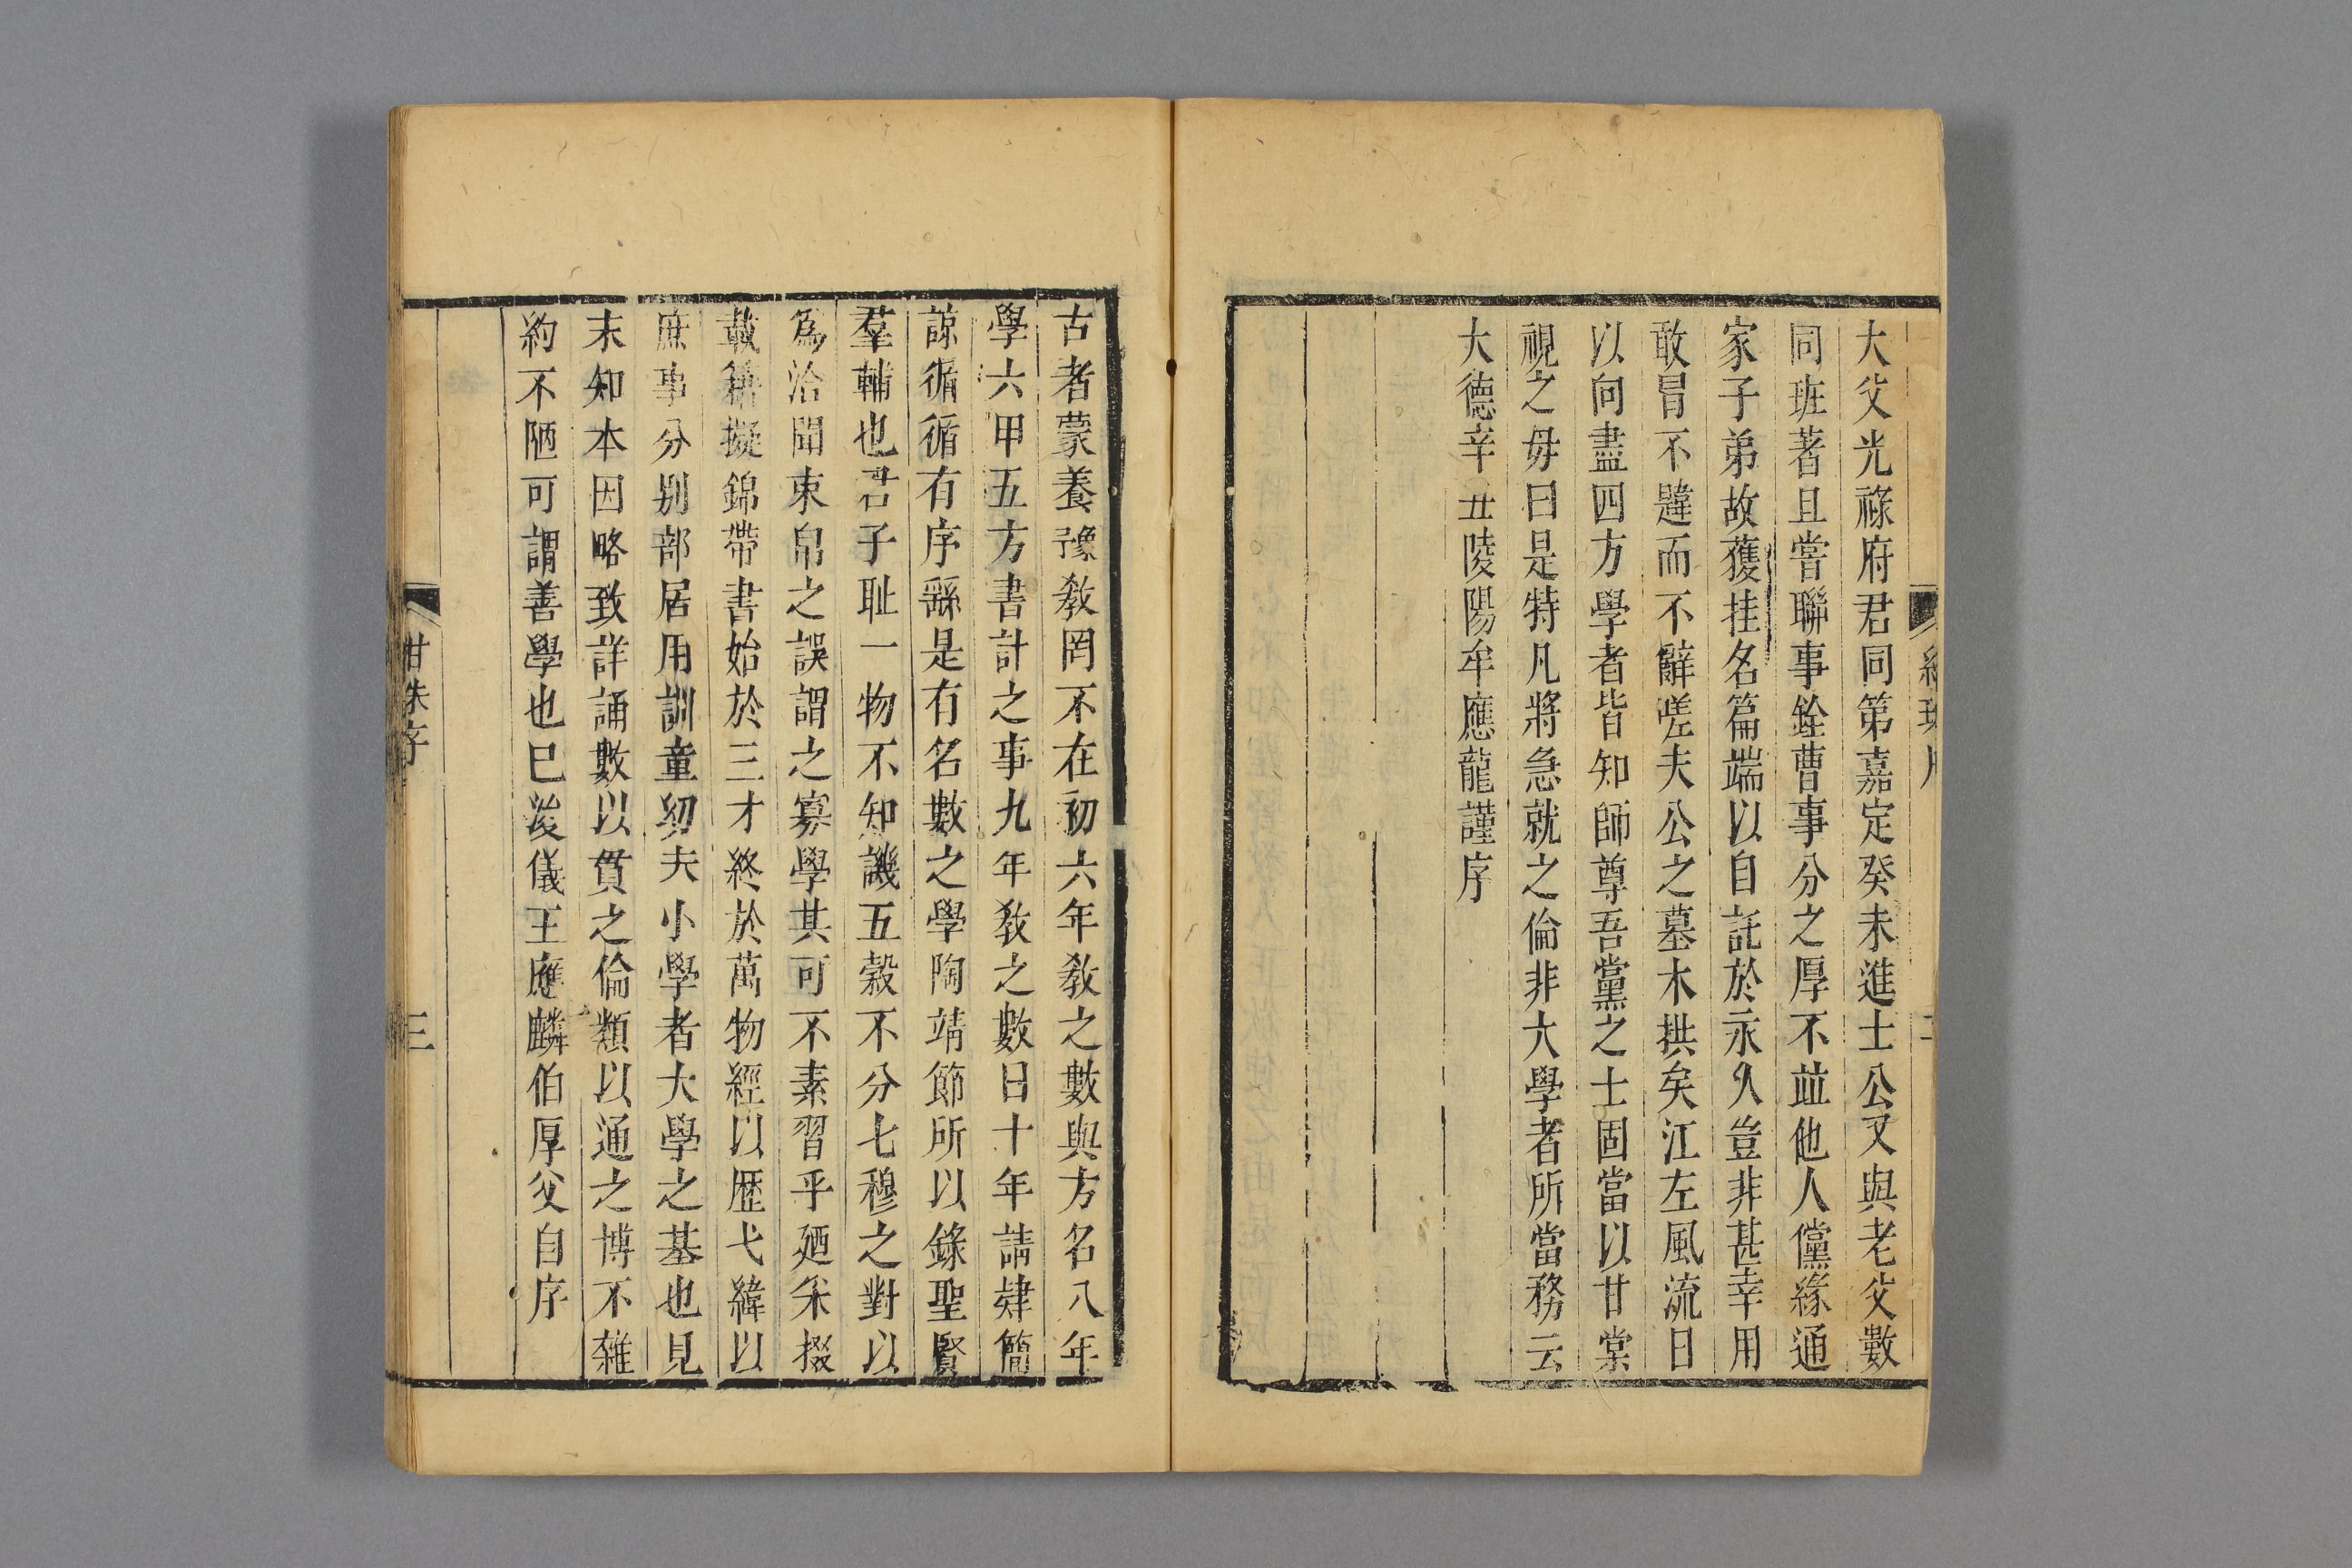 大父光祿府君同第嘉定癸未進士公又與老父數
同班著且嘗聯事銓曹事分之厚不並他人儻緣通
家子弟故獲挂名篇端以自託於永久豈非甚幸用
敢冒不韙而不辭嗟夫公之墓木拱矣江左風流日
以向盡四方學者皆知師尊吾黨之士固當以甘棠
視之毋曰是特凡將急就之倫非大學者所當務云
大德辛丑陵陽牟應龍謹序
古者蒙養豫教罔不在初六年教之數與方名八年
學六甲五方書計之事九年教之數日十年請肄簡
諒循循有序繇是有名數之學陶靖節所以錄聖賢
羣輔也君子耻一物不知譏五穀不分七穆之對以
為洽聞束帛之誤謂之寡學其可不素習乎廼采掇
載籍擬錦帶書始於三才終於萬物經以歷弋緯以
庶事分别部居用訓童幼夫小學者大學之基也見
末知本因略致詳誦數以貫之倫類以通之博不雜
約不陋可謂善學也已浚儀王應麟伯厚父自序
甘珠序
三